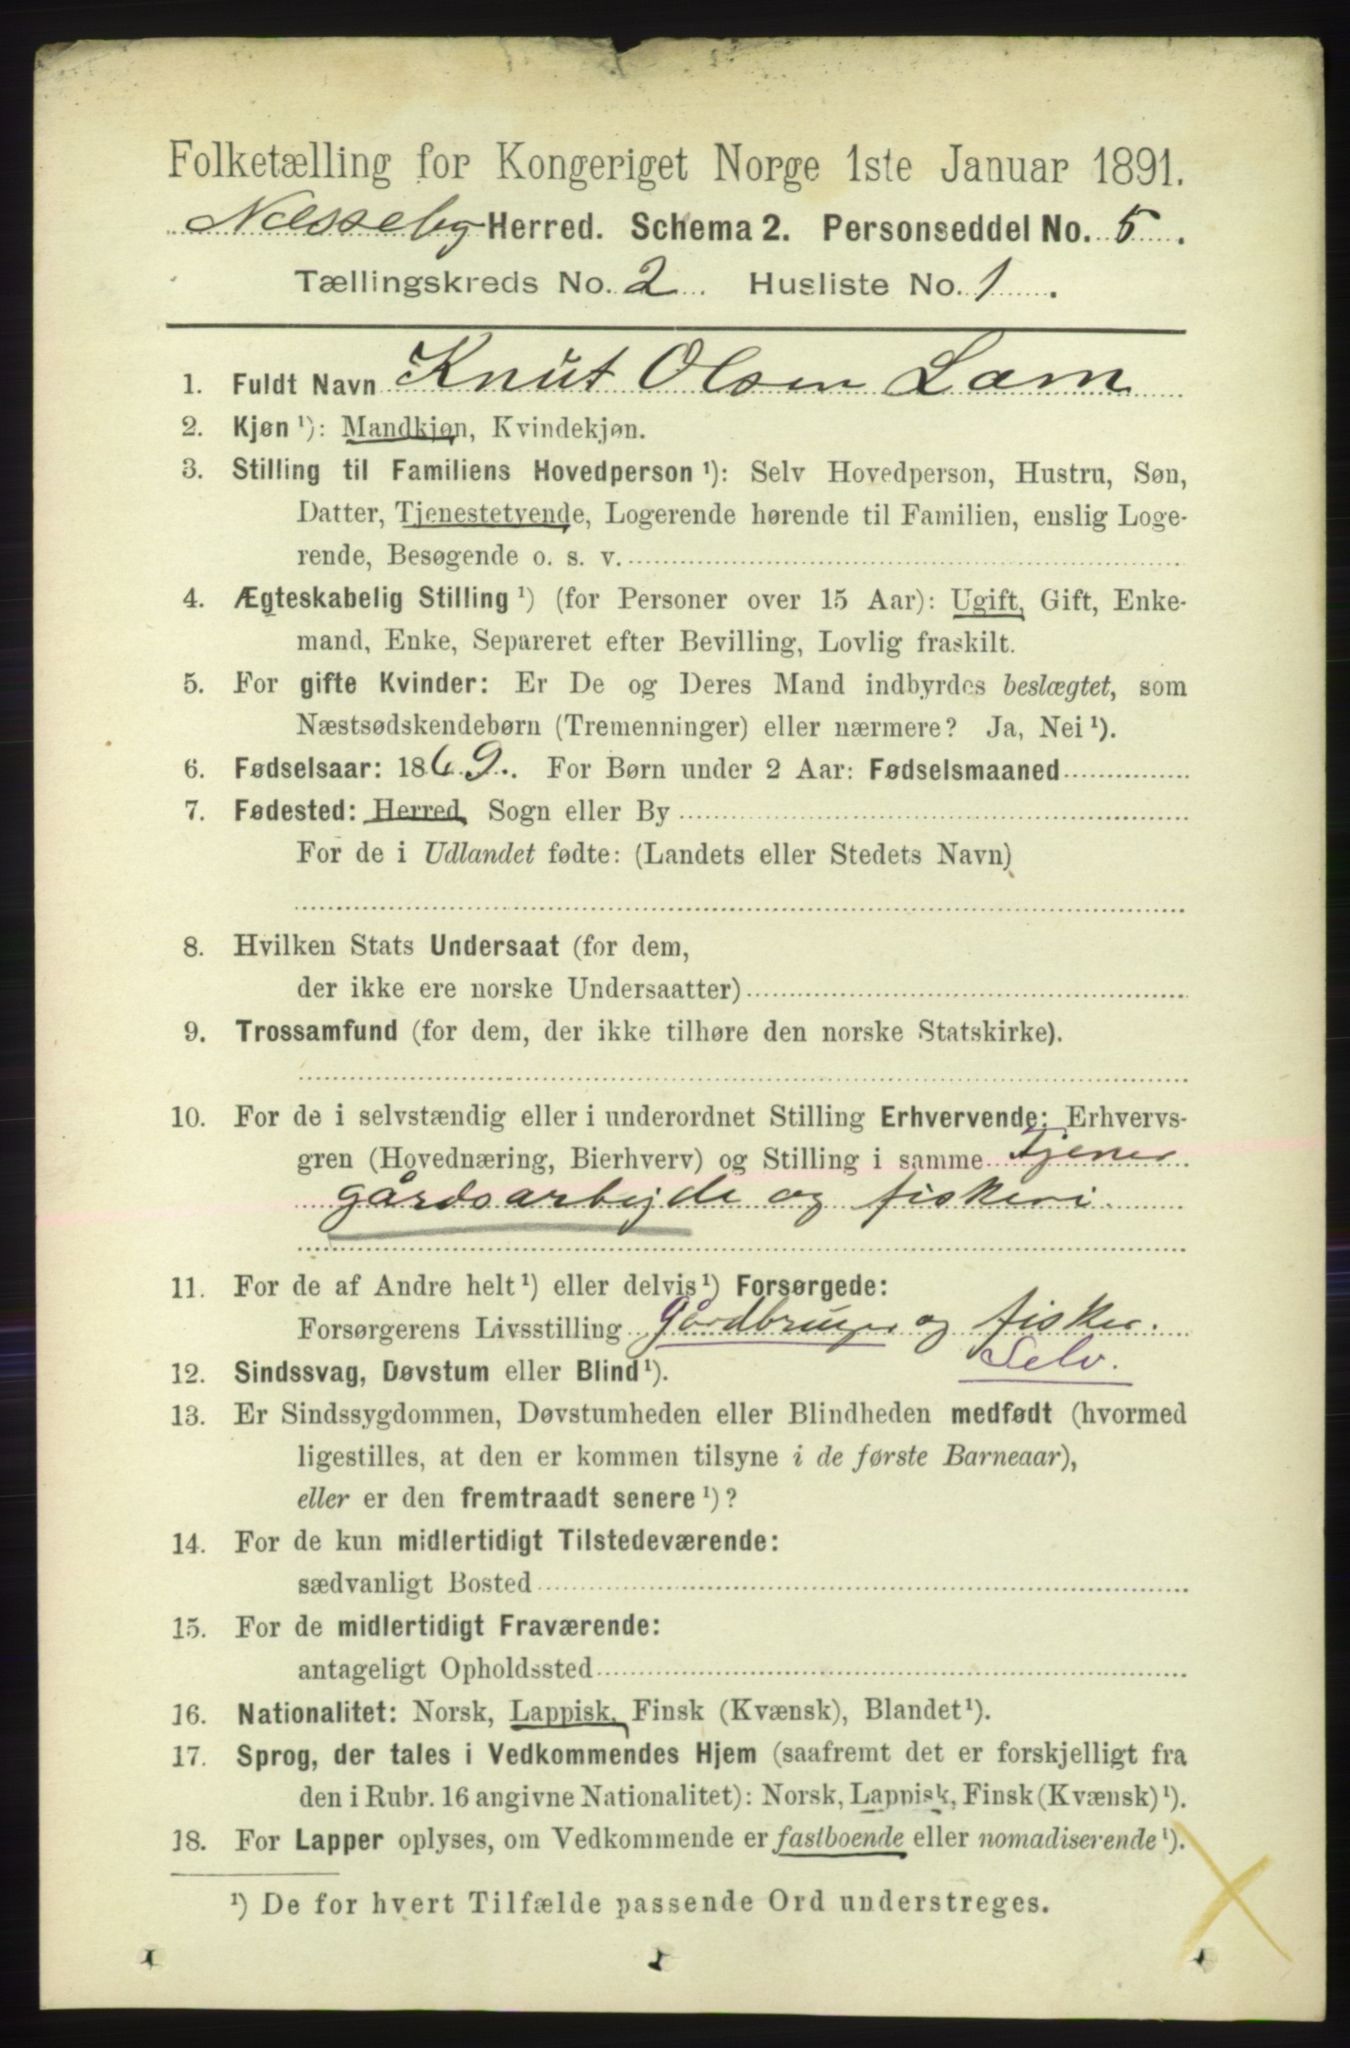 Folketælling for Kongeriget Norge 1ste Januar 1891.
Næsseby Herred. Schema 2. Personseddel No. 5.
Tællingskreds No. 2 Husliste No. 1.
1. Fuldt Navn Knut Olsen Lam
2. Kjøn ¹): Mandkjøn, Kvindekjøn.
3. Stilling til Familiens Hovedperson ¹): Selv Hovedperson, Hustru, Søn,
Datter, Tjenestetyende, Logerende hørende til Familien, enslig Loge-
rende, Besøgende o. s. v.
4. Ægteskabelig Stilling ¹) (for Personer over 15 Aar): Ugift, Gift, Enke-
mand, Enke, Separeret efter Bevilling, Lovlig fraskilt.
5. For gifte Kvinder: Er De og Deres Mand indbyrdes beslægtet, som
Næstsødskendebørn (Tremenninger) eller nærmere? Ja, Nei ¹).
6. Fødselsaar: 1869. For Børn under 2 Aar: Fødselsmaaned
7. Fødested: Herred, Sogn eller By
For de i Udlandet fødte: (Landets eller Stedets Navn)
8. Hvilken Stats Undersaat (for dem,
der ikke ere norske Undersaatter)
9. Trossamfund (for dem, der ikke tilhøre den norske Statskirke).
10. For de i selvstændig eller i underordnet Stilling Erhvervende: Erhvervs-
gren (Hovednæring, Bierhverv) og Stilling i samme Tjener
gårdsarbejde og fiskeri.
11. For de af Andre helt ¹) eller delvis ¹) Forsørgede:
Forsørgerens Livsstilling Gårdbruger og fisker.
Selv.
12. Sindssvag, Døvstum eller Blind ¹).
13. Er Sindssygdommen, Døvstumheden eller Blindheden medfødt (hvormed
ligestilles, at den er kommen tilsyne i de første Barneaar),
eller er den fremtraadt senere ¹)?
14. For de kun midlertidigt Tilstedeværende:
sædvanligt Bosted
15. For de midlertidigt Fraværende:
antageligt Opholdssted
16. Nationalitet: Norsk, Lappisk, Finsk (Kvænsk), Blandet ¹).
17. Sprog, der tales i Vedkommendes Hjem (saafremt det er forskjelligt fra
den i Rubr. 16 angivne Nationalitet): Norsk, Lappisk, Finsk (Kvænsk) ¹).
18. For Lapper oplyses, om Vedkommende er fastboende eller nomadiserende ¹).
¹) De for hvert Tilfælde passende Ord understreges.